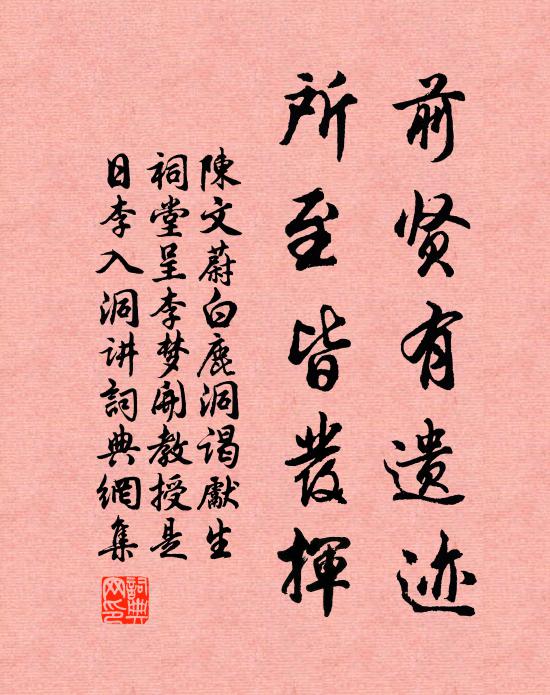 前贤有遗迹
所至皆發揮
陳文蔚白鹿洞谒獻生
祠堂呈李梦開教授是
日李入洞讲詞典網集
詞典網印